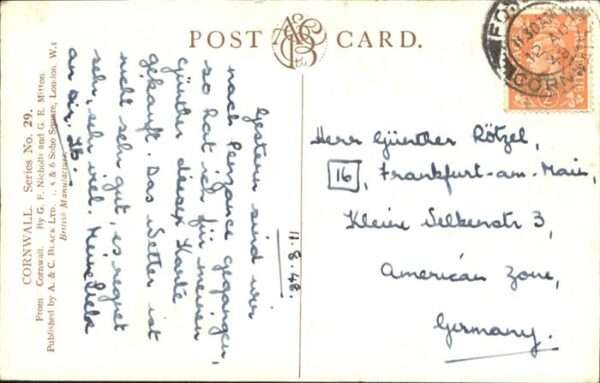 POST CARD.
CORNWALL. Series No. 29.
From Cornwall. By G. F. Nicholls and G. E. Mitton
Published by A. & C. BLACK LTD. 4, 5 & 6 Soho Square, London, W.1
British Manufacture
11.8.48.
Gestern sind wir
nach Penzance gegangen,
so hat ich für meinen
Günther diese Karte
gekauft. Das Wetter ist
nicht sehr gut, es regnet
sehr, sehr viel. Meine Liebe
an dir.
Herr Günther Rötzel,
16, Frankfurt-am-Main,
Kleine Selkerstr 3,
American Zone,
Germany.
11.30 AM
12 AU
CORN